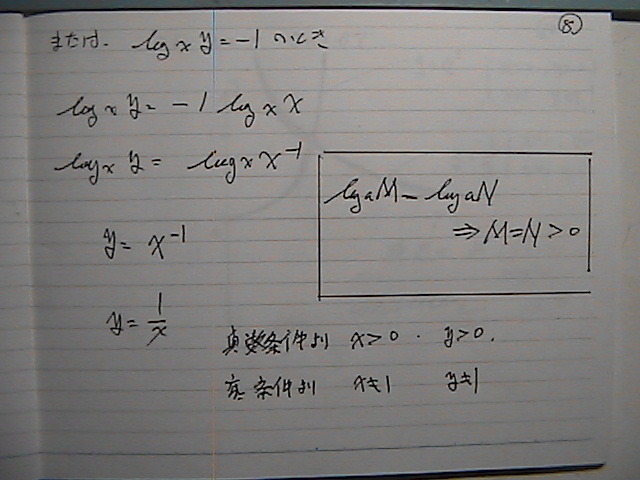 ⑧
または. log_x y = -1 のとき
log_x y = -1 log_x x
log_x y = log_x x^{-1}
log_a M = log_a N
⇒ M=N>0
y = x^{-1}
y = 1/x
真数条件より x>0. y>0.
底条件より x≠1 y≠1